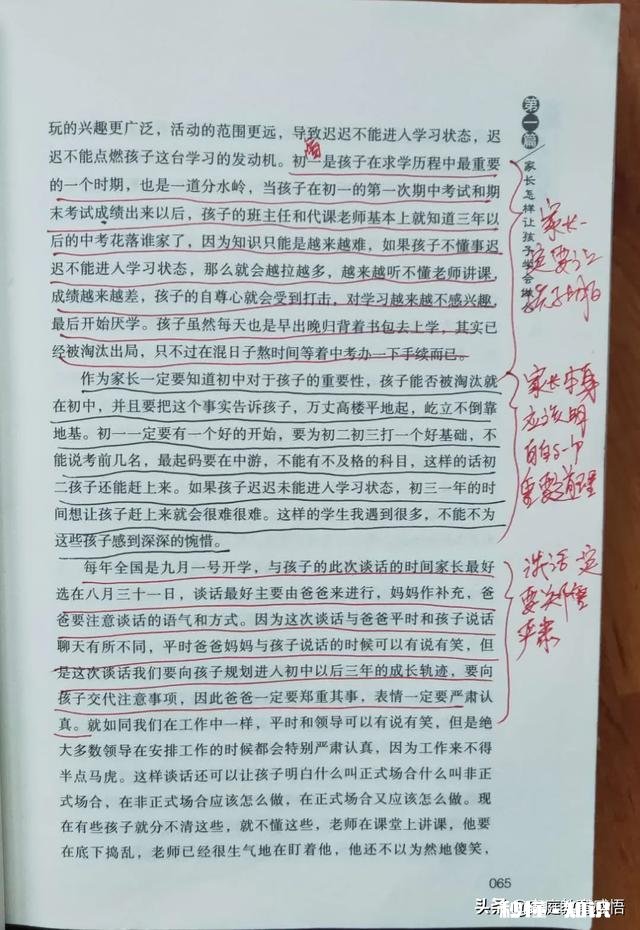 玩的兴趣更广泛，活动的范围更远，导致迟迟不能进入学习状态，迟
迟不能点燃孩子这台学习的发动机。初一是孩子在求学历程中最重要
的一个时期，也是一道分水岭，当孩子在初一的第一次期中考试和期
末考试成绩出来以后，孩子的班主任和代课老师基本上就知道三年以
后的中考花落谁家了，因为知识只能是越来越难，如果孩子不懂事迟
迟不能进入学习状态，那么就会越拉越多，越来越听不懂老师讲课，
成绩越来越差，孩子的自尊心就会受到打击，对学习越来越不感兴趣，
最后开始厌学。孩子虽然每天也是早出晚归背着书包去上学，其实已
经被淘汰出局，只不过在混日子熬时间等着中考办一下手续而已。
作为家长一定要知道初中对于孩子的重要性，孩子能否被淘汰就
在初中，并且要把这个事实告诉孩子，万丈高楼平地起，屹立不倒靠
地基。初一一定要有一个好的开始，要为初二初三打一个好基础，不
能说考前几名，最起码要在中游，不能有不及格的科目，这样的话初
二孩子还能赶上来。如果孩子迟迟未能进入学习状态，初三一年的时
间想让孩子赶上来就会很难很难。这样的学生我遇到很多，不能不为
这些孩子感到深深的惋惜。
每年全国是九月一号开学，与孩子的此次谈话的时间家长最好
选在八月三十一日，谈话最好主要由爸爸来进行，妈妈作补充，爸
爸要注意谈话的语气和方式。因为这次谈话与爸爸平时和孩子说话
聊天有所不同，平时爸爸妈妈与孩子说话的时候可以有说有笑，但
是这次谈话我们要向孩子规划进入初中以后三年的成长轨迹，要向
孩子交代注意事项，因此爸爸一定要郑重其事，表情一定要严肃认
真。就如同我们在工作中一样，平时和领导可以有说有笑，但是绝
大多数领导在安排工作的时候都会特别严肃认真，因为工作来不得
半点马虎。这样谈话还可以让孩子明白什么叫正式场合什么叫非正
式场合，在非正式场合应该怎么做，在正式场合又应该怎么做。现
在有些孩子就分不清这些，就不懂这些，老师在课堂上讲课，他要
在底下捣乱，老师已经很生气地在盯着他，他还不以为然地傻笑，
第一篇
家长怎样让孩子学会
家长一
定要让
孩子明白
家长本身
应该明
白这个
重要道理
谈话一定
要郑重
严肃
065
头条
家庭教育感悟